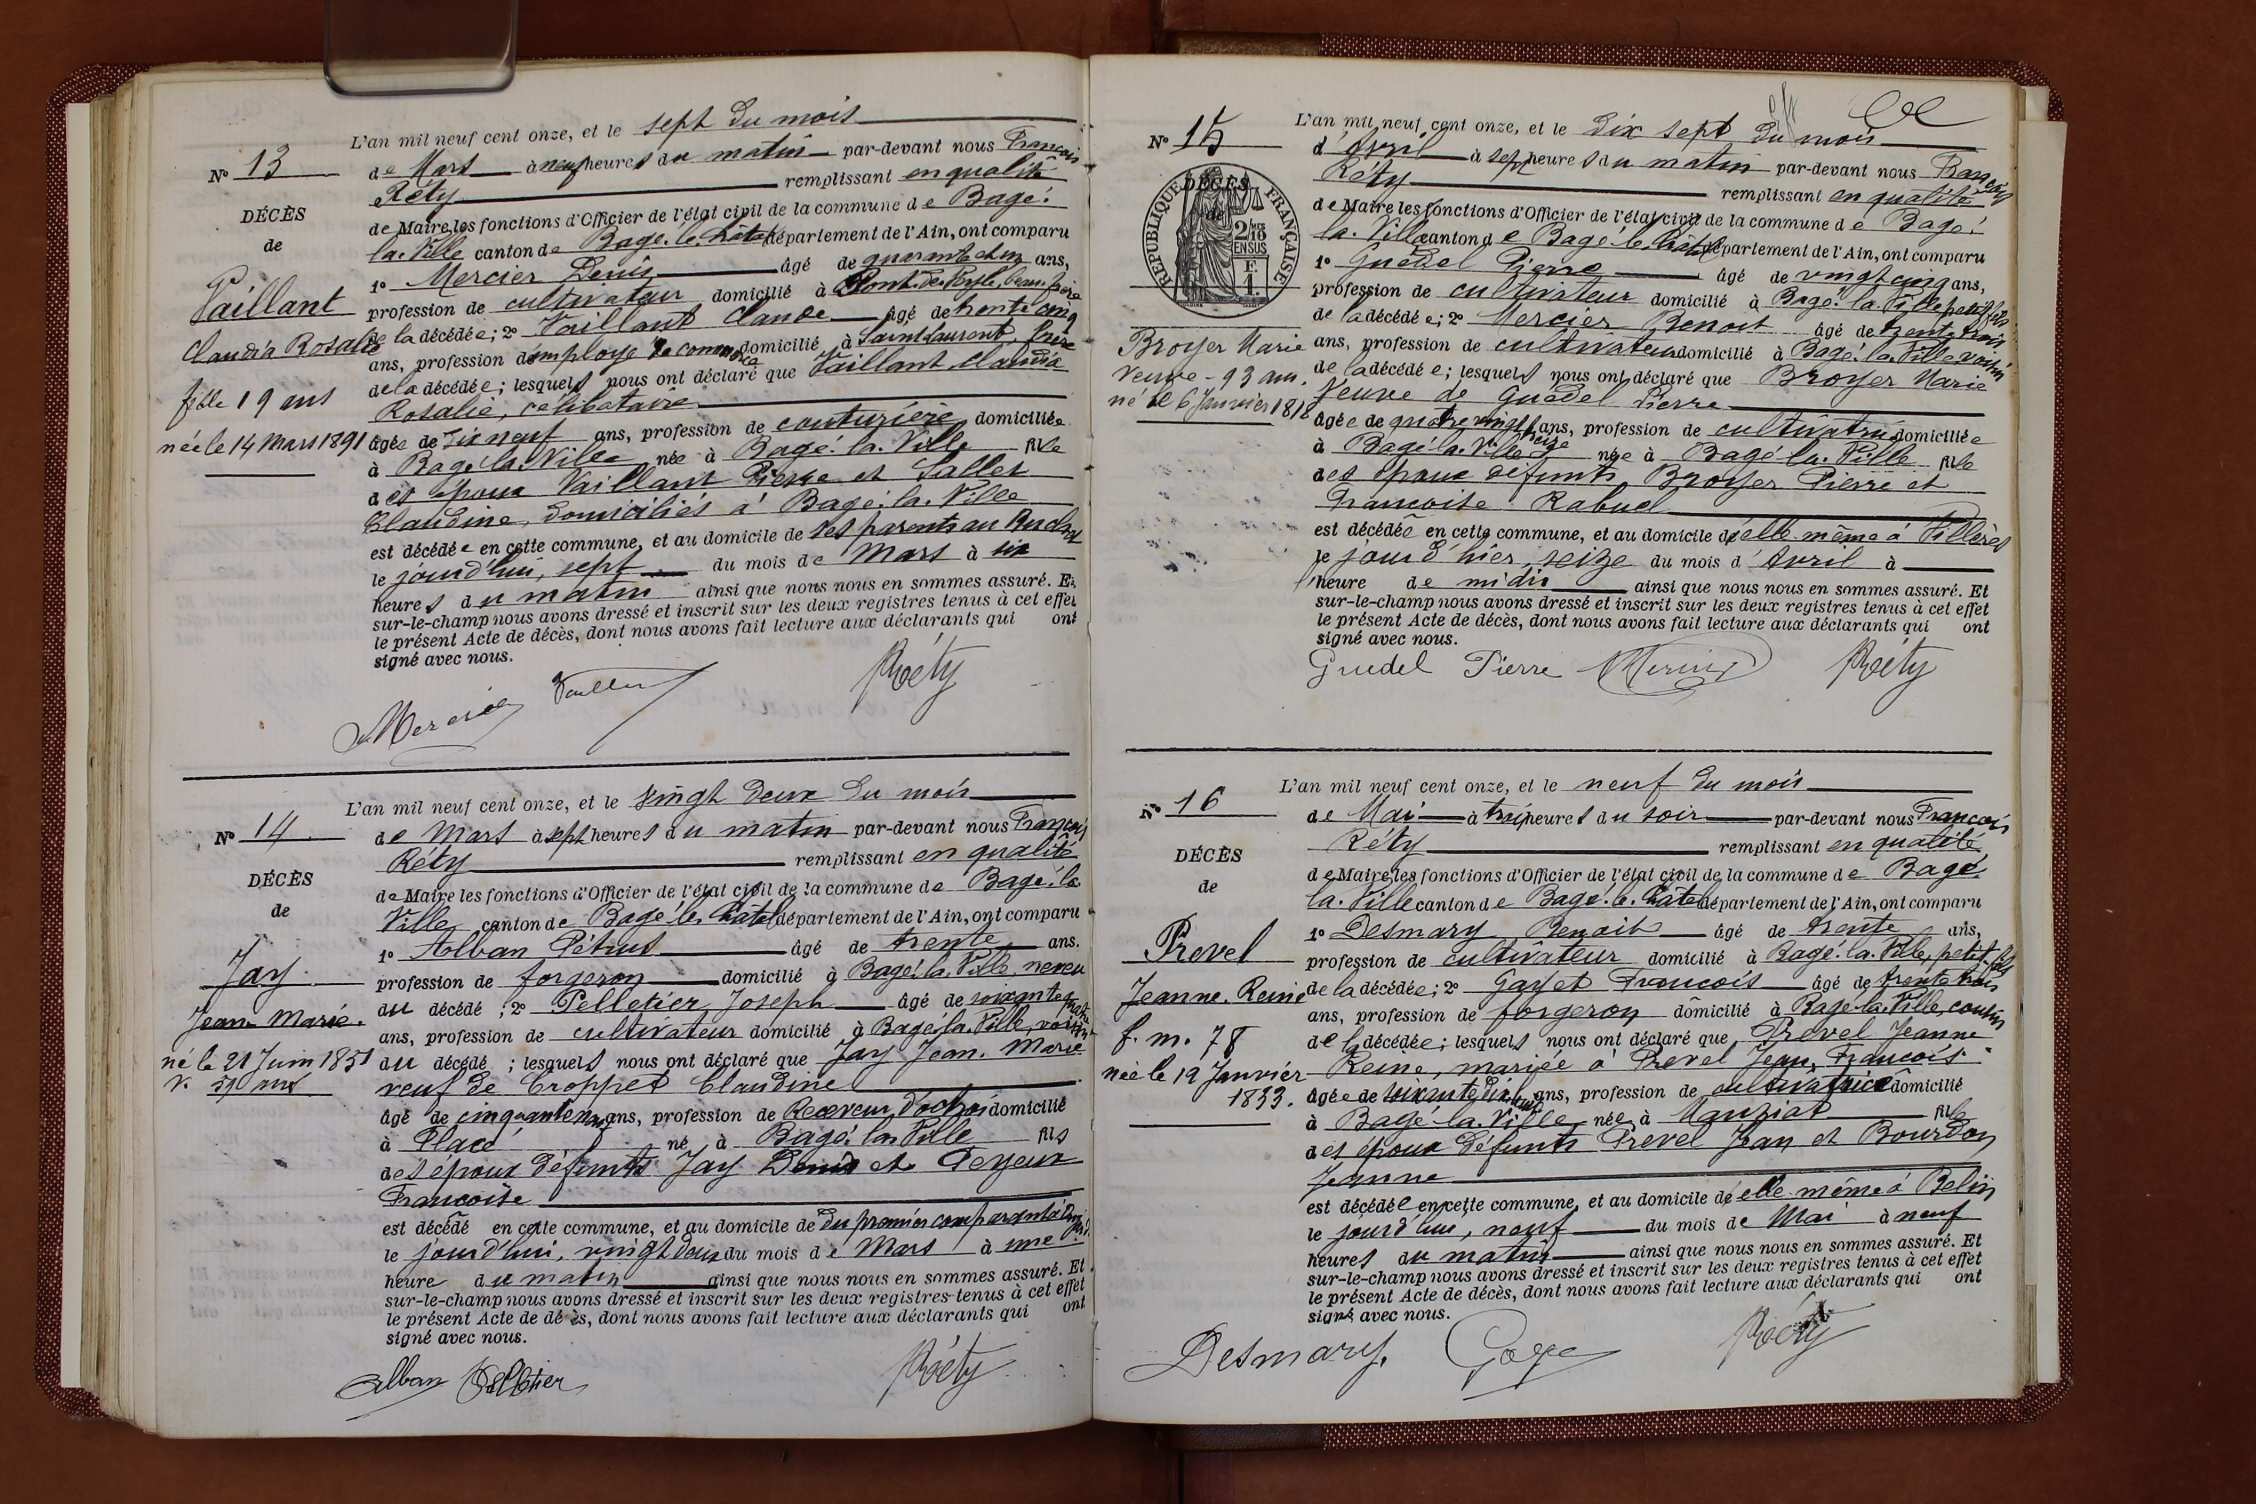 L'an mil neuf cent onze, et le sept du mois
N° 13
de Mars à neuf heures du matin par-devant nous François
Réty remplissant en qualité
DÉCÈS
de Maire les fonctions d'Officier de l'état civil de la commune de Bagé-
de
la-Ville canton de Bagé-le-Châtel département de l'Ain, ont comparu
1° Mercier Denis âgé de quarante et un ans,
Vaillant
profession de cultivateur domicilié à Pont-de-Veyle, beau-frère
Claudia Rosalie
de la décédée; 2° Vaillant Claude âgé de trente cinq
ans, profession d'employé de commerce domicilié à Saint-Laurent, frère
fille 19 ans
de la décédée; lesquels nous ont déclaré que Vaillant Claudia
Rosalie, célibataire
née le 14 Mars 1891
âgée de dix neuf ans, profession de couturière domiciliée
à Bagé-la-Ville née à Bagé-la-Ville fille
des époux Vaillant Pierre et Sallet
Claudine, domiciliés à Bagé-la-Ville
est décédée en cette commune, et au domicile de ses parents au
le jourd'hui, sept du mois de Mars à six
heures du matin ainsi que nous nous en sommes assuré. Et
sur-le-champ nous avons dressé et inscrit sur les deux registres tenus à cet effet
le présent Acte de décès, dont nous avons fait lecture aux déclarants qui ont
signé avec nous.
Mercier Vaillant Réty
L'an mil neuf cent onze, et le vingt deux du mois
N° 14
de Mars à sept heures du matin par-devant nous François
Réty remplissant en qualité
DÉCÈS
de Maire les fonctions d'Officier de l'état civil de la commune de Bagé-la
de
Ville canton de Bagé-le-Châtel département de l'Ain, ont comparu
1° Alban Pétrus âgé de trente ans.
Jay
profession de forgeron domicilié à Bagé-la-Ville, neveu
Jean-Marie
du décédé; 2° Pelletier Joseph âgé de soixante quatre
ans, profession de cultivateur domicilié à Bagé-la-Ville, voisin
né le 21 Juin 1851
du décédé; lesquels nous ont déclaré que Jay Jean-Marie
v. 59 ans
veuf de Croppet Claudine
âgé de cinquante neuf ans, profession de Receveur d'octroi domicilié
à Placé né à Bagé-la-Ville fils
des époux défunts Jay Denis et Peyeux
Françoise
est décédé en cette commune, et au domicile de du premier comparant à
le jourd'hui, vingt deux du mois de Mars à une
heure du matin ainsi que nous nous en sommes assuré. Et
sur-le-champ nous avons dressé et inscrit sur les deux registres tenus à cet effet
le présent Acte de décès, dont nous avons fait lecture aux déclarants qui ont
signé avec nous.
Alban Pelletier Réty
L'an mil neuf cent onze, et le dix sept du mois
N° 15
d'Avril à sept heures du matin par-devant nous François
Réty remplissant en qualité
RÉPUBLIQUE FRANÇAISE
DÉCÈS
de
2/10 EN SUS
F. 1
de Maire les fonctions d'Officier de l'état civil de la commune de Bagé-
la-Ville canton de Bagé-le-Châtel département de l'Ain, ont comparu
1° Guédel Pierre âgé de vingt cinq ans,
profession de cultivateur domicilié à Bagé-la-Ville petit-fils
de la décédée; 2° Mercier Benoit âgé de trente trois
Broyer Marie
ans, profession de cultivateur domicilié à Bagé-la-Ville voisin
veuve - 93 ans.
de la décédée; lesquels nous ont déclaré que Broyer Marie
né le 6 Janvier 1818
Veuve de Guédel Pierre
âgée de quatre vingt treize ans, profession de cultivatrice domiciliée
à Bagé-la-Ville née à Bagé-la-Ville fille
des époux défunts Broyer Pierre et
Françoise Rabuel
est décédée en cette commune, et au domicile d'elle même à Villères
le jour d'hier, seize du mois d'Avril à
l'heure de midi ainsi que nous nous en sommes assuré. Et
sur-le-champ nous avons dressé et inscrit sur les deux registres tenus à cet effet
le présent Acte de décès, dont nous avons fait lecture aux déclarants qui ont
signé avec nous.
Guedel Pierre Mercier Réty
L'an mil neuf cent onze, et le neuf du mois
N° 16
de Mai à trois heures du soir par-devant nous François
Réty remplissant en qualité
DÉCÈS
de Maire les fonctions d'Officier de l'état civil de la commune de Bagé-
de
la-Ville canton de Bagé-le-Châtel département de l'Ain, ont comparu
1° Desmary Benoit âgé de trente ans,
Prevel
profession de cultivateur domicilié à Bagé-la-Ville, petit-fils
Jeanne-Reine
de la décédée; 2° Gayet François âgé de trente trois
ans, profession de forgeron domicilié à Bagé-la-Ville, cousin
f. m. 78
de la décédée; lesquels nous ont déclaré que Prevel Jeanne
née le 19 Janvier
Reine, mariée à Prevel Jean François
1833.
âgée de soixante dix huit ans, profession de cultivatrice domicilié
à Bagé-la-Ville née à Manziat fille
des époux défunts Prevel Jean et Bourdon
Jeanne
est décédée en cette commune, et au domicile d'elle-même à Belin
le jourd'hui, neuf du mois de Mai à neuf
heures du matin ainsi que nous nous en sommes assuré. Et
sur-le-champ nous avons dressé et inscrit sur les deux registres tenus à cet effet
le présent Acte de décès, dont nous avons fait lecture aux déclarants qui ont
signé avec nous.
Desmary. Réty